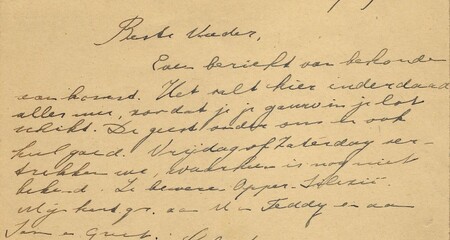 Beste Moeder,
Even bericht van behouden
aankomst. Het valt hier inderdaad
alles mee, zoodat je je gauw in je lot
schikt. De geest onder ons is ook
heel goed. Vrijdag of Zaterdag ver-
trekken we, waarheen is nog niet
bekend. Ze beweren Opper-Silezië.
Mijn hart. gr. aan U en Teddy en aan
Jan en Greet.